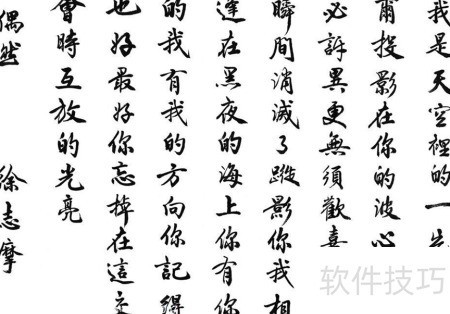 我是天空裡的一
爾投影在你的波心
必訝異更無須歡喜
瞬間消滅了蹤影你我相
逢在黑夜的海上你有你
的我有我的方向你記得
也好最好你忘掉在這交
會時互放的光亮
偶然 徐志摩
软件技巧